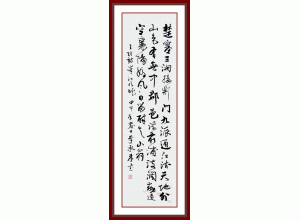 楚塞三湘接荆門九派通江流天地外
山色有无中郡邑浮前浦波瀾動遠
空襄陽好風日留醉与山翁
王維詩